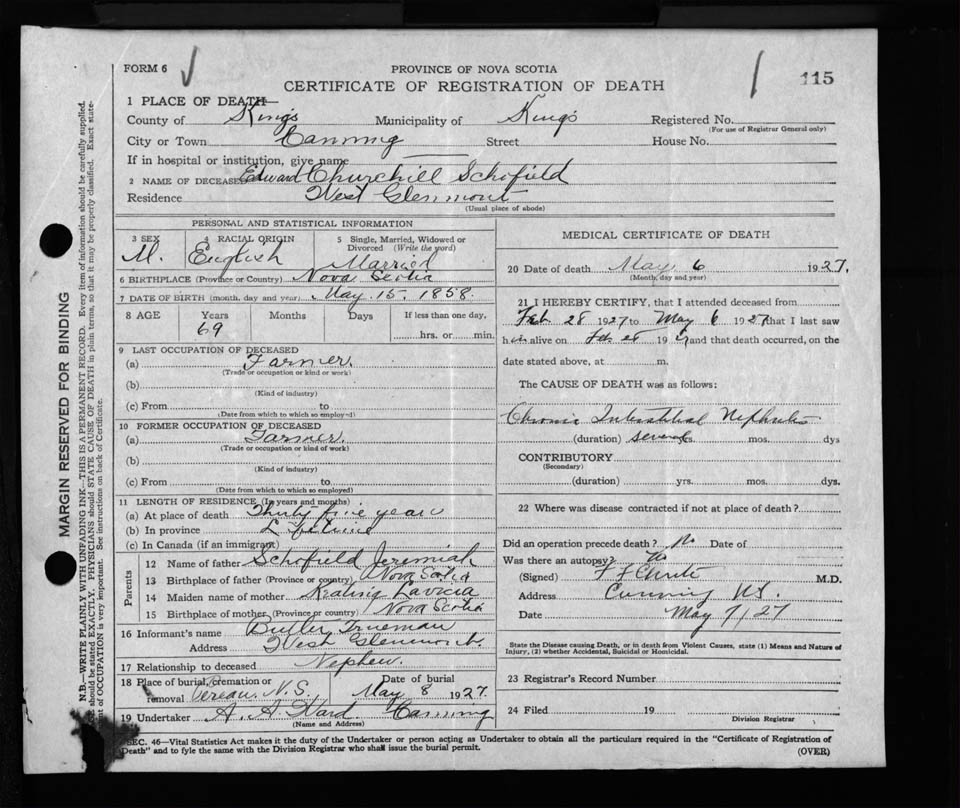 FORM 6
PROVINCE OF NOVA SCOTIA
CERTIFICATE OF REGISTRATION OF DEATH
115
1 PLACE OF DEATH—
County of Kings Municipality of Kings Registered No.
(For use of Registrar General only)
City or Town Canning Street House No.
If in hospital or institution, give name
2 NAME OF DECEASED Edward Churchill Schofield
Residence West Glenmont
(Usual place of abode)
PERSONAL AND STATISTICAL INFORMATION
3 SEX M.
4 RACIAL ORIGIN English
5 Single, Married, Widowed or Divorced (Write the word) Married
6 BIRTHPLACE (Province or Country) Nova Scotia
7 DATE OF BIRTH (month, day and year) May 15, 1858.
8 AGE Years Months Days If less than one day,
69 hrs. or min.
9 LAST OCCUPATION OF DECEASED
(a) Farmer.
(Trade or occupation or kind or work)
(b)
(Kind of industry)
(c) From to
(Date from which to which so employed)
10 FORMER OCCUPATION OF DECEASED
(a) Farmer.
(Trade or occupation or kind of work)
(b)
(Kind of industry)
(c) From to
(Date from which to which so employed)
11 LENGTH OF RESIDENCE (In years and months)
(a) At place of death Thirty five years
(b) In province Lifetime
(c) In Canada (if an immigrant)
Parents
12 Name of father Schofield Jeremiah
13 Birthplace of father (Province or country) Nova Scotia
14 Maiden name of mother Keating
15 Birthplace of mother (Province or country) Nova Scotia
16 Informant's name Butler Trueman
Address West Glenmont.
17 Relationship to deceased Nephew.
18 Place of burial, Cremation or removal Pereau, N.S. Date of burial May 8 1927.
19 Undertaker A. A. Ward Canning
(Name and Address)
MEDICAL CERTIFICATE OF DEATH
20 Date of death May 6 1927.
(Month, day and year)
21 I HEREBY CERTIFY, that I attended deceased from
Feb 28 1927 to May 6 1927 that I last saw
him alive on Feb 28 192 and that death occurred, on the
date stated above, at m.
The CAUSE OF DEATH was as follows:
Chronic Interstitial Nephritis
(duration) several yrs. mos. dys
CONTRIBUTORY
(Secondary)
(duration) yrs. mos. dys.
22 Where was disease contracted if not at place of death?
Did an operation precede death? No Date of
Was there an autopsy? No
(Signed) M.D.
Address Canning N.S.
Date May 7/27
State the Disease causing Death, or in death from Violent Causes, state (1) Means and Nature of
Injury, (2) whether Accidental, Suicidal or Homicidal.
23 Registrar's Record Number
24 Filed 19
Division Registrar
SEC. 46—Vital Statistics Act makes it the duty of the Undertaker or person acting as Undertaker to obtain all the particulars required in the "Certificate of Registration of
Death" and to fyle the same with the Division Registrar who shall issue the burial permit. (OVER)
MARGIN RESERVED FOR BINDING
N.B.—WRITE PLAINLY WITH UNFADING INK—THIS IS A PERMANENT RECORD. Every item of information should be carefully supplied.
should be stated EXACTLY. PHYSICIANS should STATE CAUSE OF DEATH in plain terms, so that it may be properly classified. Exact state-
ment of OCCUPATION is very important. See instructions on back of Certificate.